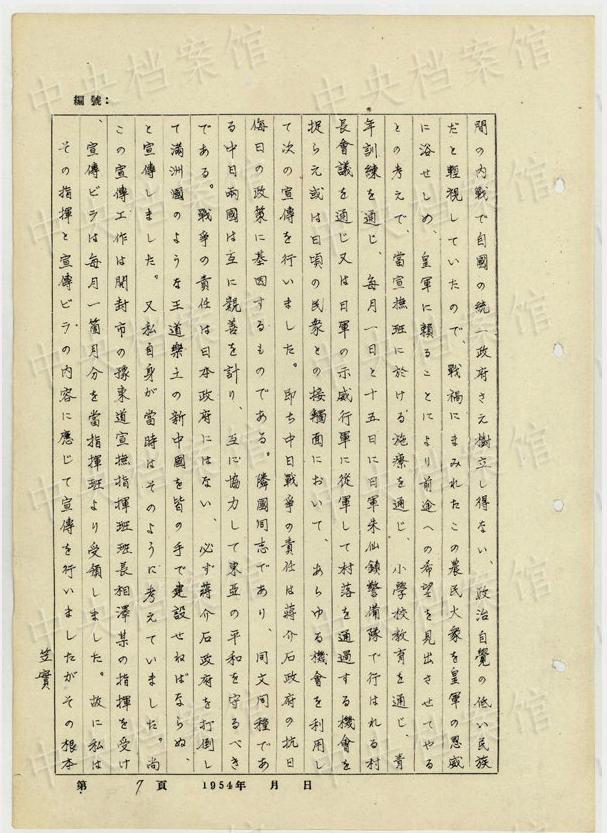 編號:
間の内戰で自國の統一政府さえ樹立し得ない、政治自覺の低い民族
だと輕視していたので、戰禍にまみれたこの農民大衆を皇軍の恩威
に浴せしめ、皇軍に賴ることにより前途への希望を見出させてやる
との考えで、當宣撫班に於ける施療を通じ、小學校教育を通じ、青
年訓練を通じ、每月一日と十五日に日軍朱仙鎮警備隊で行はれる村
長會議を通じ又は日軍の示威行軍に從軍して村落を通過する機會を
捉らえ或は日頃の民衆との接觸面において、あらゆる機會を利用し
て次の宣傳を行いました。即ち中日戰爭の責任は蔣介石政府の抗日
侮日の政策に基因するものである。隣國同志であり、同文同種であ
る中日兩國は互に親善を計り、互に協力して東亞の平和を守るべき
である。戰爭の責任は日本政府にはない、必ず蔣介石政府を打倒し
て滿洲國のような王道樂土の新中國を皆の手で建設せねばならぬ、
と宣傳しました。又私自身が當時はそのように考えていました。尚
この宣傳工作は開封市の豫東道宣撫指揮班班長相澤某の指揮を受け
、宣傳ビラは每月一箇月分を當指揮班より受領しました。故に私は
その指揮と宣傳ビラの内容に應じて宣傳を行いましたがその根本
笠實
第 7 頁 1954年 月 日
中央档案馆